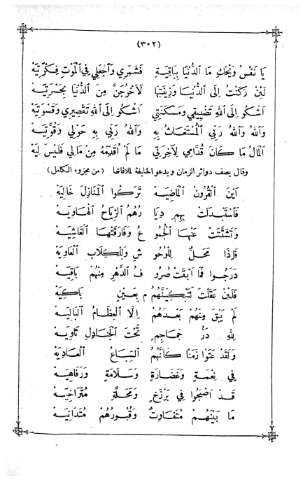 (٣٠٢)
يَا نَفْسُ وَيْحَكِ مَا الدُّنْيَا بِبَاقِيَةٍ فَشَمِّرِي وَاجْعَلِي فِي الْمَوْتِ فِكْرَتِيَهْ
لَئِنْ رَكَنْتُ إِلَى الدُّنْيَا وَزِينَتِهَا لَأَخْرُجَنَّ مِنَ الدُّنْيَا بِحَسْرَتِيَهْ
أَشْكُو إِلَى اللهِ تَضْيِيعِي وَمَسْكَنَتِي أَشْكُو إِلَى اللهِ تَقْصِيرِي وَقَسْوَتِيَهْ
وَاللهُ وَاللهُ رَبِّي الْمُسْتَغَاثُ بِهِ وَاللهُ رَبِّي بِهِ حَوْلِي وَقُوَّتِيَهْ
أَلْمَالُ مَا كَانَ قُدَّامِي لِآخِرَتِي مَا لَمْ أُقَدِّمْهُ مِنْ مَالِي فَلَيْسَ لِيَهْ
وقال يصف دوائر الزمان ويدعو الخليقة للاتعاظ (من مجزوء الكامل)
أَيْنَ الْقُرُونُ الْمَاضِيَهْ تَرَكُوا الْمَنَازِلَ خَالِيَهْ
فَاسْتَبْدَلَتْ بِهِمِ دِيَا رُهُمُ الرِّيَاحَ الْهَاوِيَهْ
وَتَشَتَّتَتْ عَنْهَا الْجُمُو عُ وَفَارَقَتْهَا الْغَاشِيَهْ
فَإِذَا مَحَلٌّ لِلْوُحُو شِ وَلِلْكِلَابِ الْعَاوِيَهْ
دَرَجُوا فَمَا أَبْقَتْ صُرُو فُ الدَّهْرِ مِنْهُمْ بَاقِيَهْ
فَلَئِنْ عَقَلْتَ لَتَبْكِيَنَّهُمُ بِعَيْنٍ بَاكِيَهْ
لَمْ يَبْقَ مِنْهُمْ بَعْدَهُمْ إِلَّا الْعِظَامُ الْبَالِيَهْ
لِلهِ دَرُّ جَمَاجِمٍ تَحْتَ الْجَنَادِلِ ثَاوِيَهْ
وَلَقَدْ عَتَوْا زَمَنًا كَأَنَّهُمُ السِّبَاعُ الْعَادِيَهْ
فِي نِعْمَةٍ وَغَضَارَةٍ وَسَلَامَةٍ وَرَفَاهِيَهْ
قَدْ أَصْبَحُوا فِي بَرْزَخٍ وَمَحَلَّةٍ مُتَرَاخِيَهْ
مَا بَيْنَهُمْ مُتَفَاوِتٌ وَقُبُورُهُمْ مُتَدَانِيَهْ